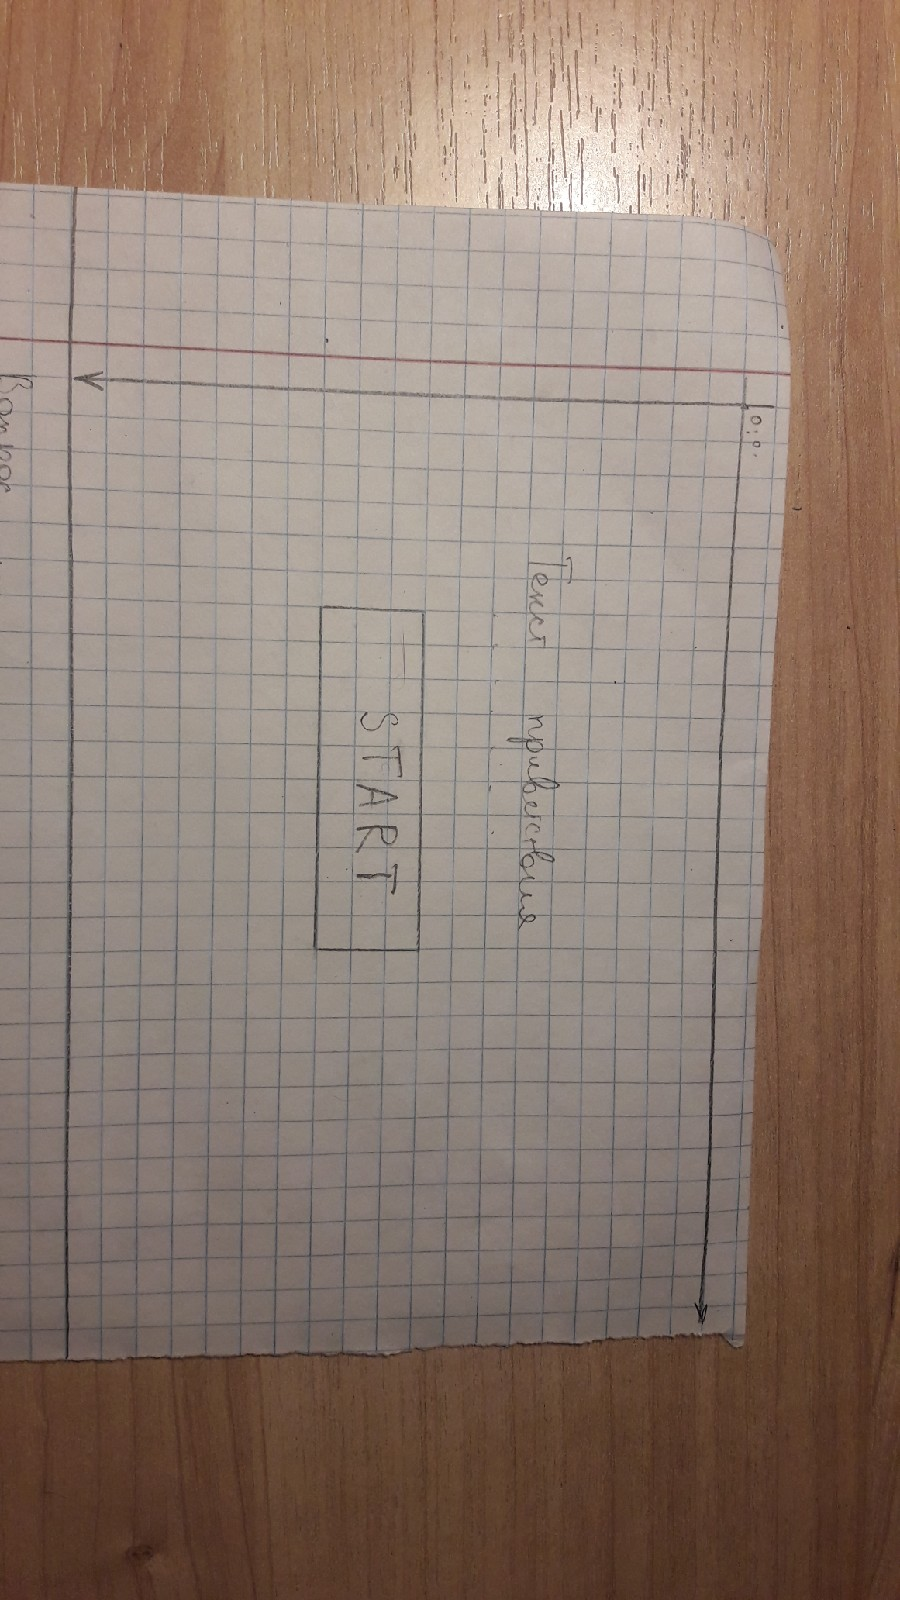 0;0.
Текст приветствия
START
Вопрос